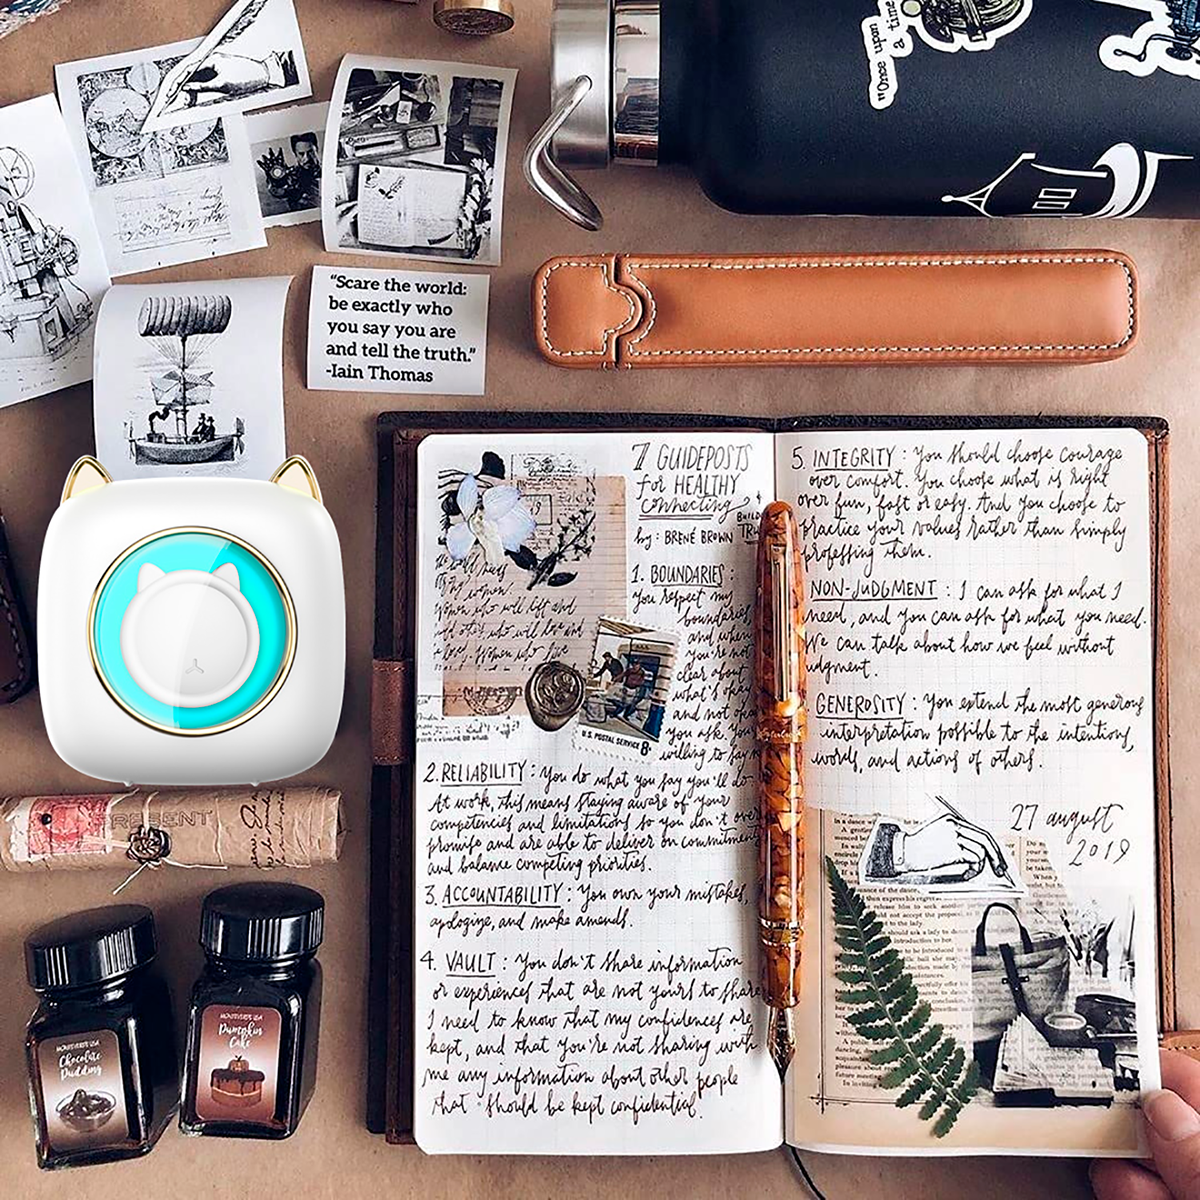 "Once upon
a time"
"Scare the world:
be exactly who
you say you are
and tell the truth."
-Iain Thomas
7 GUIDEPOSTS
for HEALTHY
connecting
by: BRENÉ BROWN
1. BOUNDARIES:
You respect my
boundaries,
and when
you're not
clear about
what's okay
and not okay
you ask. You're
willing to say
U.S. POSTAL SERVICE 8¢
2. RELIABILITY: You do what you say you'll do.
At work, this means staying aware of your
competencies and limitations so you don't over
promise and are able to deliver on commitments
and balance competing priorities.
3. ACCOUNTABILITY: You own your mistakes,
apologize, and make amends.
4. VAULT: You don't share information
or experiences that are not yours to share
I need to know that my confidences are
kept, and that you're not sharing with
me any information about other people
that should be kept confidential.
5. INTEGRITY: You should choose courage
over comfort. You choose what is right
over fun, fast or easy. And you choose to
practice your values rather than simply
professing them.
NON-JUDGMENT: I can ask for what I
need, and you can ask for what you need.
We can talk about how we feel without
judgment.
GENEROSITY: You extend the most generous
interpretation possible to the intentions,
words, and actions of others.
27 august
2019
PRESENT
Chocolate
Pudding
Pumpkin
Cake